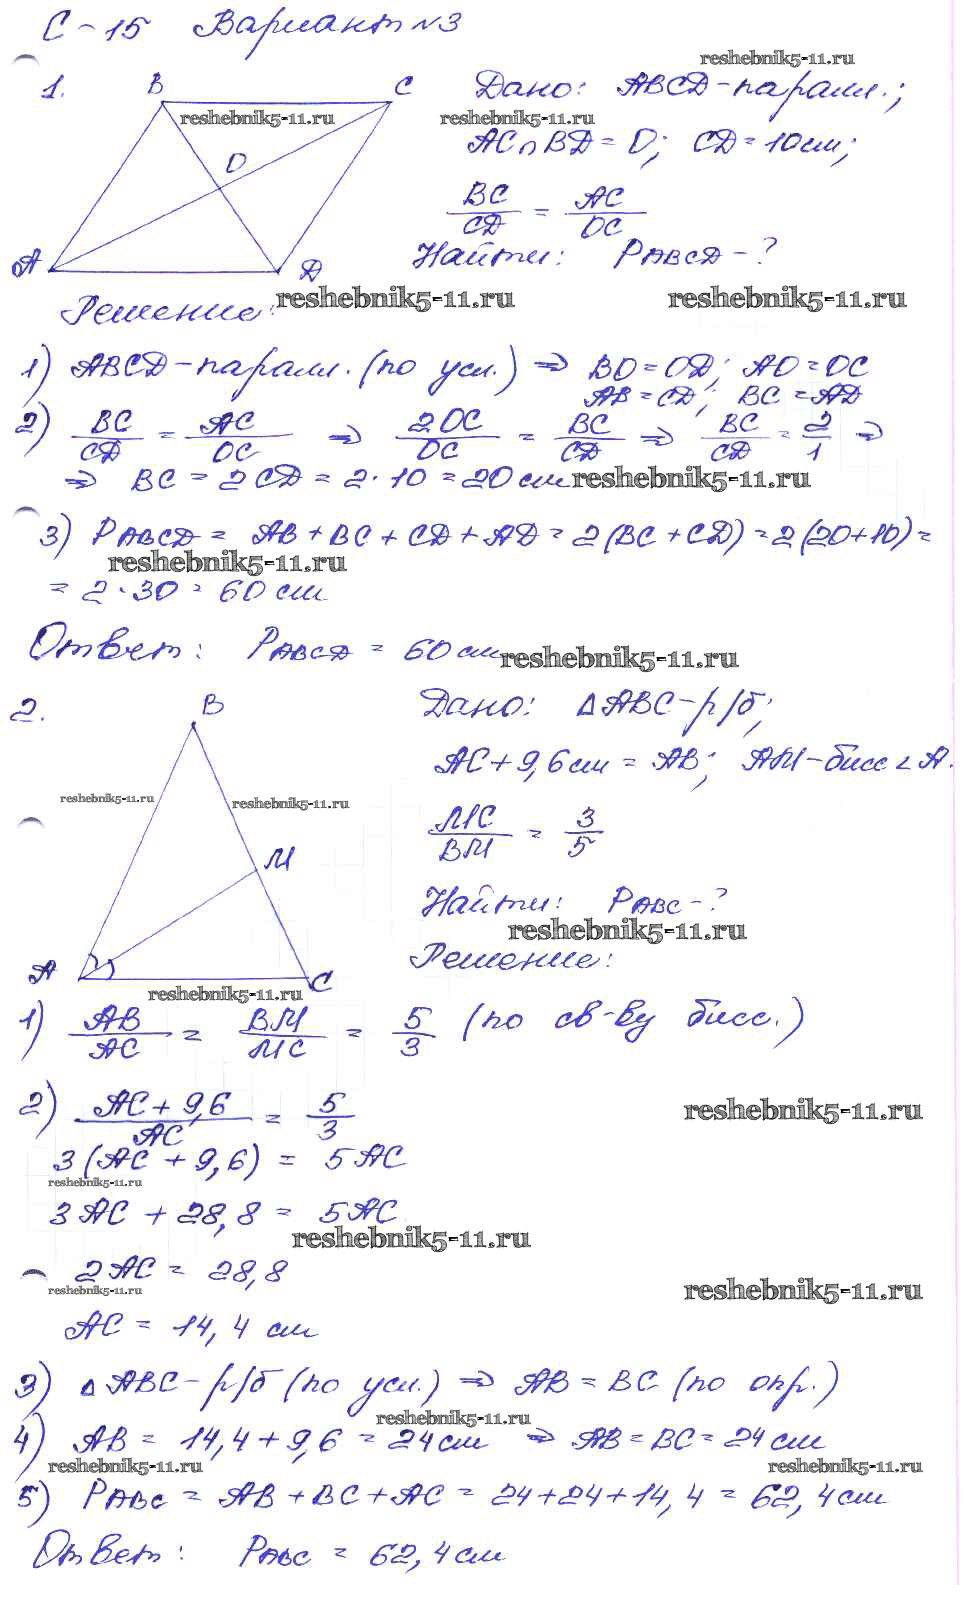 С-15 Вариант №3
reshebnik5-11.ru
1. B C Дано: ABCD-паралл.;
reshebnik5-11.ru reshebnik5-11.ru
O AC∩BD=O; CD=10см;
BC/CD = AC/OC
A D Найти: PABCD-?
Решение: reshebnik5-11.ru reshebnik5-11.ru
1) ABCD-паралл. (по усл.) ⇒ BO=OD; AO=OC
AB=CD; BC=AD
2) BC/CD = AC/OC ⇒ 2OC/OC = BC/CD ⇒ BC/CD = 2/1 ⇒
⇒ BC = 2CD = 2·10 = 20см reshebnik5-11.ru
3) PABCD = AB+BC+CD+AD=2(BC+CD)=2(20+10)=
reshebnik5-11.ru
= 2·30 = 60см
Ответ: PABCD = 60см reshebnik5-11.ru
2. B Дано: ΔABC-р/б;
AC+9,6см = AB; AM-бисс ∠A.
reshebnik5-11.ru reshebnik5-11.ru
MC/BM = 3/5
M
Найти: PABC-?
reshebnik5-11.ru
A C Решение:
reshebnik5-11.ru
1) AB/AC = BM/MC = 5/3 (по св-ву бисс.)
2) AC+9,6/AC = 5/3
reshebnik5-11.ru
3(AC+9,6) = 5AC
reshebnik5-11.ru
3AC+28,8 = 5AC
reshebnik5-11.ru
2AC = 28,8
reshebnik5-11.ru reshebnik5-11.ru
AC = 14,4 см
3) ΔABC-р/б (по усл.) ⇒ AB=BC (по опр.)
reshebnik5-11.ru
4) AB = 14,4+9,6 = 24см ⇒ AB=BC=24см
reshebnik5-11.ru reshebnik5-11.ru
5) PABC = AB+BC+AC = 24+24+14,4 = 62,4см
Ответ: PABC = 62,4см